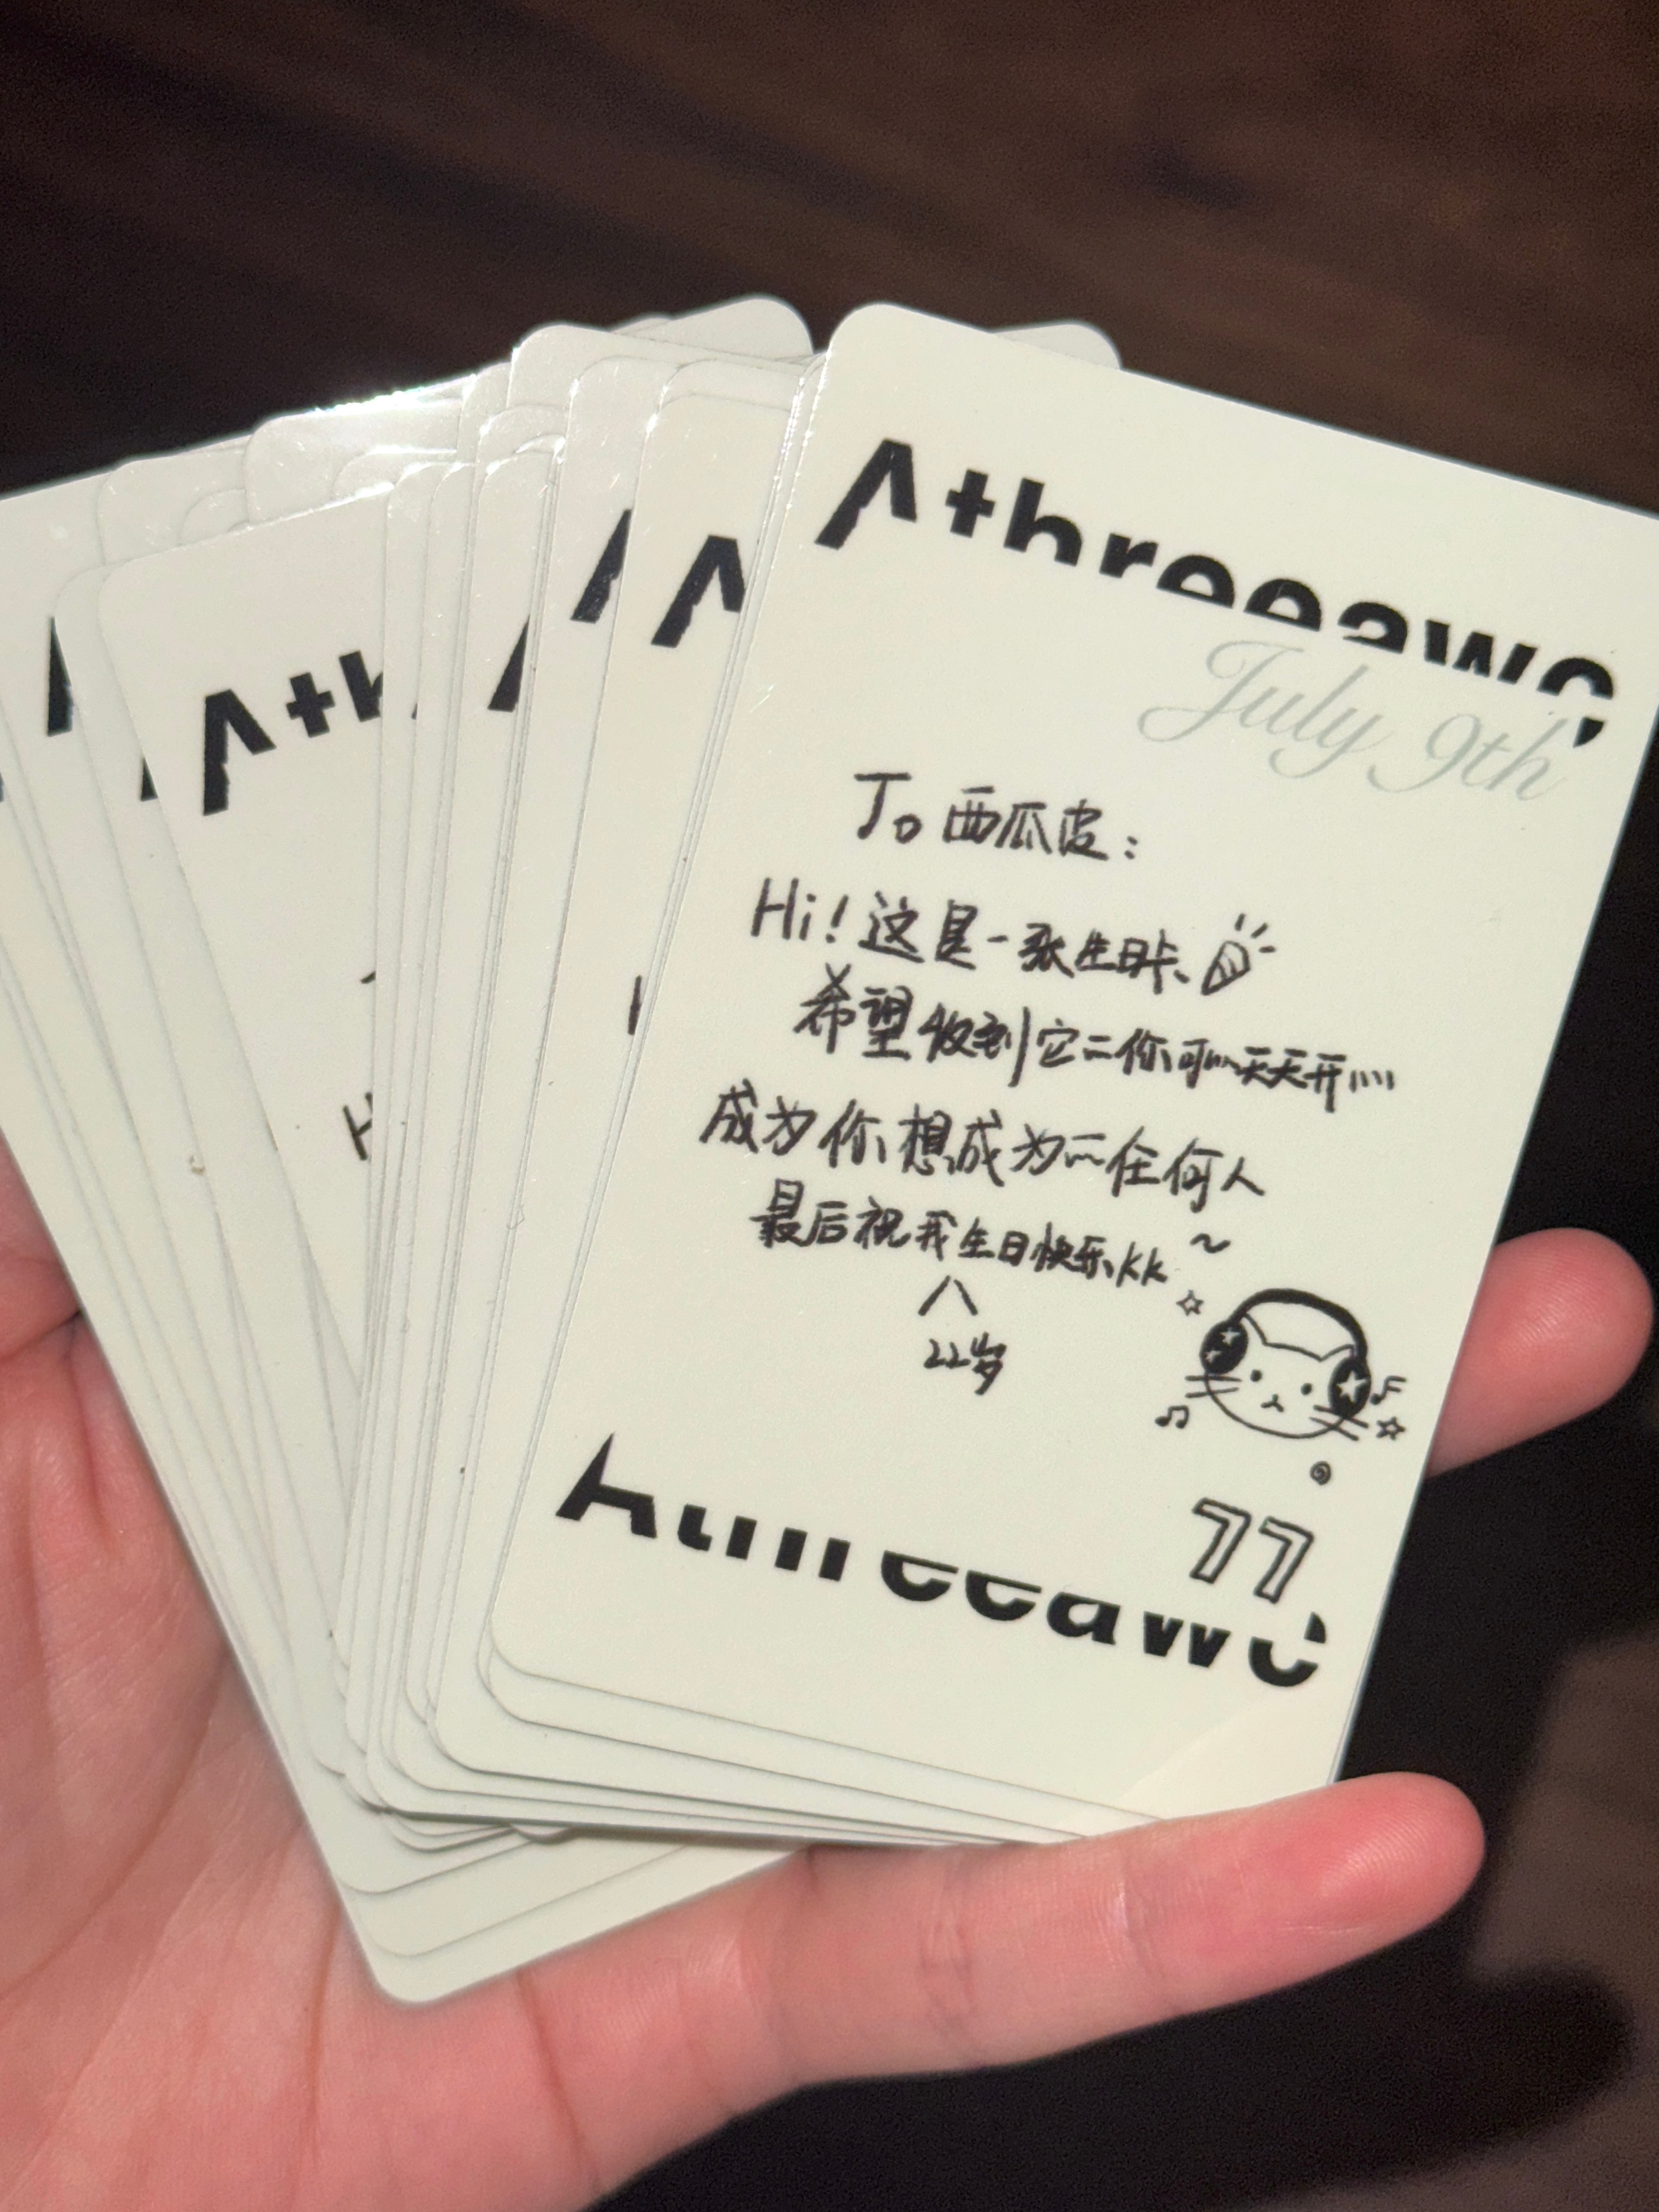 Athreeawe
July 9th
To 西瓜皮:
Hi!这是一张生日卡
希望收到它二你可以天天开心
成为你想成为二任何人
最后祝我生日快乐kk~
22岁
77
Athreeawe
Ath
A
A
H